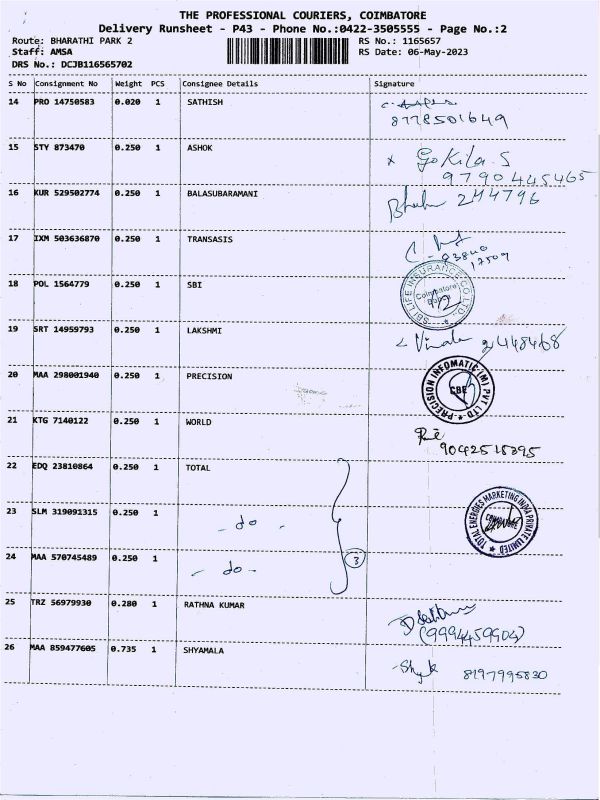 THE PROFESSIONAL COURIERS, COIMBATORE
Delivery Runsheet - P43 - Phone No.:0422-3505555 - Page No.:2
Route: BHARATHI PARK 2 RS No.: 1165657
Staff: AMSA RS Date: 06-May-2023
DRS No.: DCJB116565702
S No Consignment No Weight PCS Consignee Details Signature
14 PRO 14750583 0.020 1 SATHISH
8778501649
15 STY 873470 0.250 1 ASHOK x Gokila.S
9790445465
16 KUR 529502774 0.250 1 BALASUBARAMANI 244796
17 IXM 503636870 0.250 1 TRANSASIS
93840
17509
18 POL 1564779 0.250 1 SBI SBI LIFE INSURANCE CO LTD. Coimbatore
19 SRT 14959793 0.250 1 LAKSHMI Vimala 2448468
20 MAA 298001940 0.250 1 PRECISION PRECISION INFOMATIC (M) PVT LTD CBE
21 KTG 7140122 0.250 1 WORLD
9042518395
22 EDQ 23810864 0.250 1 TOTAL TOTAL ENERGIES MARKETING INDIA PRIVATE LIMITED
23 SLM 319091315 0.250 1 - do -
24 MAA 570745489 0.250 1 - do - 3
25 TRZ 56979930 0.280 1 RATHNA KUMAR
(9994459904)
26 MAA 859477605 0.735 1 SHYAMALA 8197995830